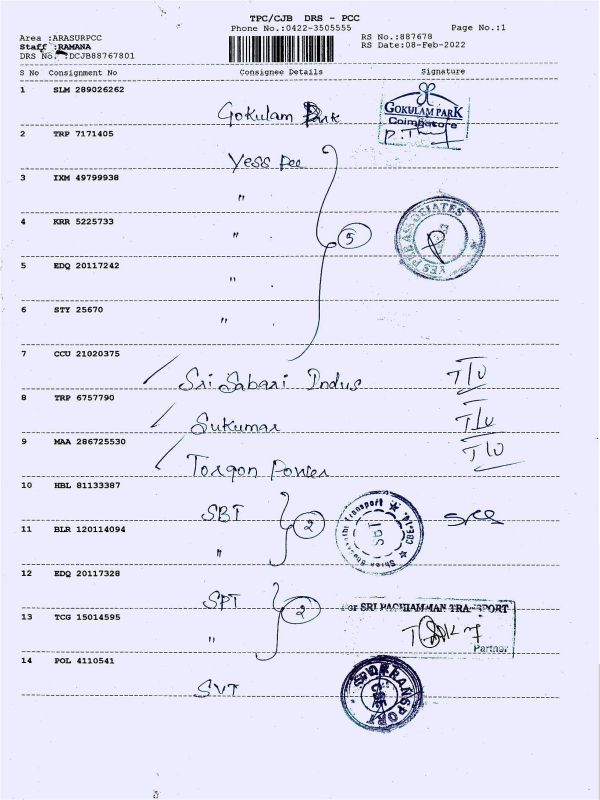 TPC/CJB DRS - PCC
Phone No.:0422-3505555
Page No.:1
Area :ARASURPCC
RS No.:887678
Staff :RAMANA
RS Date:08-Feb-2022
DRS No. :DCJB88767801
S No Consignment No Consignee Details Signature
1 SLM 289026262
Gokulam Park
GOKULAM PARK
Coimbatore
2 TRP 7171405
Yess pee
3 IXM 49799938
"
4 KRR 5225733
"
5
YES PEE ASSOCIATES
5 EDQ 20117242
"
6 STY 25670
"
7 CCU 21020375
Sri Sabari Indus T/U
8 TRP 6757790
Sukumar T/U
9 MAA 286725530
Torqon Power T/U
10 HBL 81133387
SBT
2
SBT
CBE-14
11 BLR 120114094
"
12 EDQ 20117328
SPT
2
For SRI PACHIAMMAN TRANSPORT
Partner
13 TCG 15014595
"
14 POL 4110541
SVT
TRANSPORT
CBE